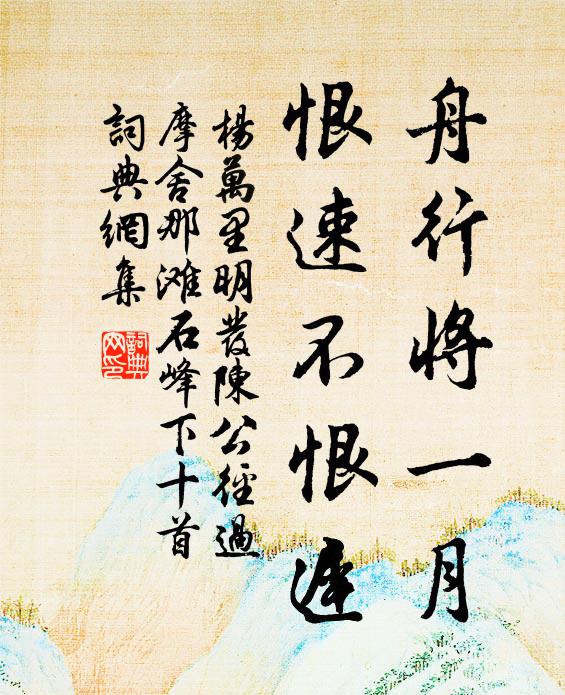 舟行将一月
恨速不恨遲
楊萬里明發陳公徑過
摩舍那滩石峰下十首
詞典網集
詞典网印